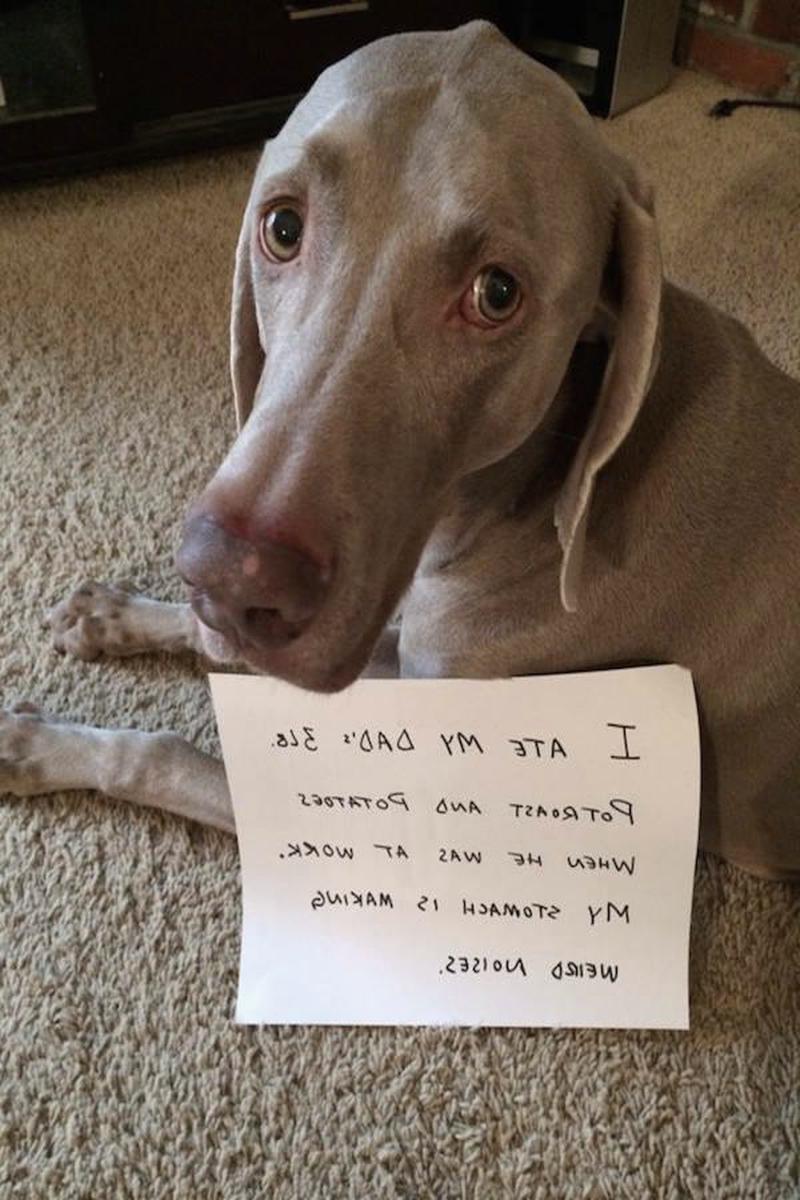 I ATE MY DAD'S 3LB.
POTROAST AND POTATOES
WHEN HE WAS AT WORK.
MY STOMACH IS MAKING
WEIRD NOISES.